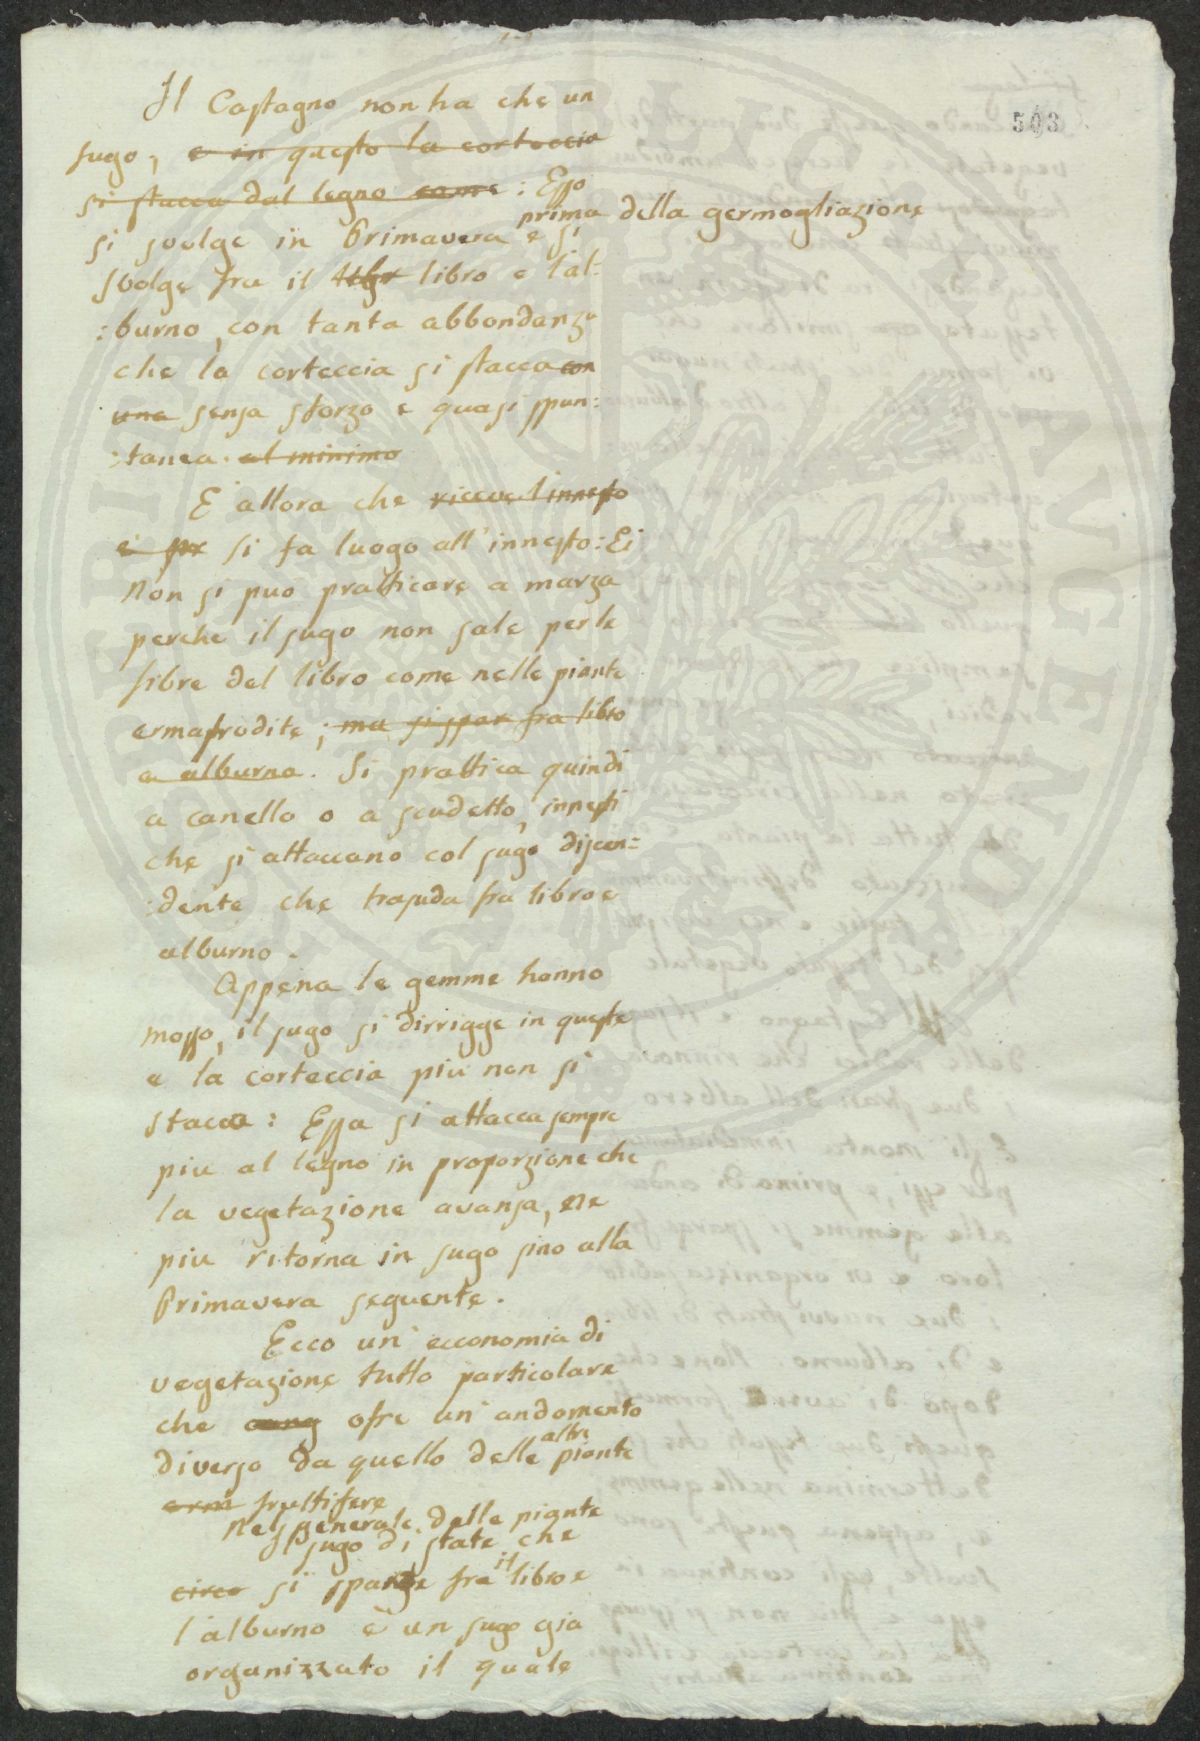 503
Il Castagno non ha che un
sugo, e in questo la corteccia
si stacca dal legno come : Esso
prima della germogliazione
si svolge in Primavera e si
svolge fra il libro e l'al:
:burno, con tanta abbondanza
che la corteccia si stacca con
una senza sforzo e quasi spun:
:tanea. al minimo
E allora che riceve l'innesto
e si fa luogo all'innesto: Ei
non si può pratticare a marza
perche il sugo non sale per le
fibre del libro come nelle piante
ermafrodite; ma si spar fra libro
e alburno. Si prattica quindi
a canello o a scudetto, innesti
che si attaccano col sugo discen=
:dente che trasuda fra libro e
alburno.
Appena le gemme hanno
mosso, il sugo si dirrigge in queste
e la corteccia piu non si
stacca: Essa si attacca sempre
piu al legno in proporzione che
la vegetazione avansa, ne
piu ritorna in sugo sino alla
Primavera seguente.
Ecco un' ecconomia di
vegetazione tutta particolare
che ofre un' andamento
altre
diverso da quello delle piante
erm fruttifere
Nel generale delle piante
sugo di state che
circo si spange fra il libro e
l'alburno è un sugo gia
organizzato il quale